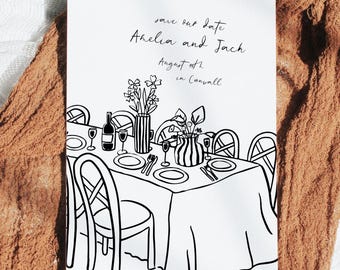 save our date
Amelia and Jack
August 10th
in Cornwall